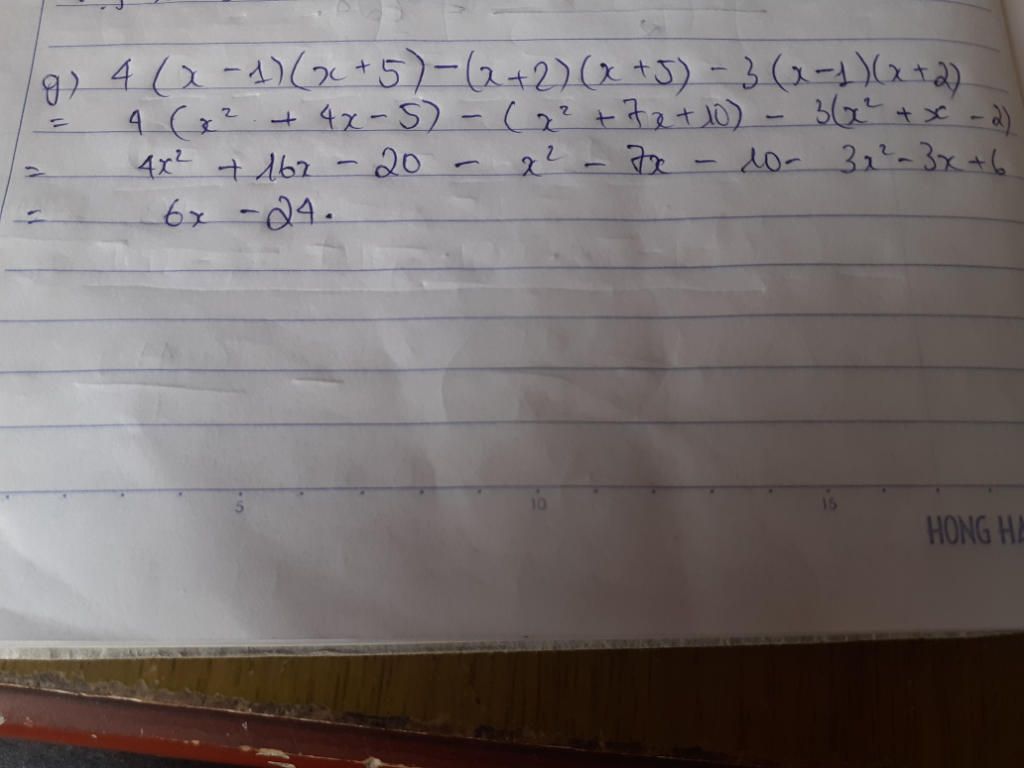 g) 4 (x - 1)(x + 5) - (x + 2)(x + 5) - 3(x - 1)(x + 2)
= 4 (x² + 4x - 5) - (x² + 7x + 10) - 3(x² + x - 2)
= 4x² + 16x - 20 - x² - 7x - 10 - 3x² - 3x + 6
= 6x - 24.
5 10 15
HONG HA